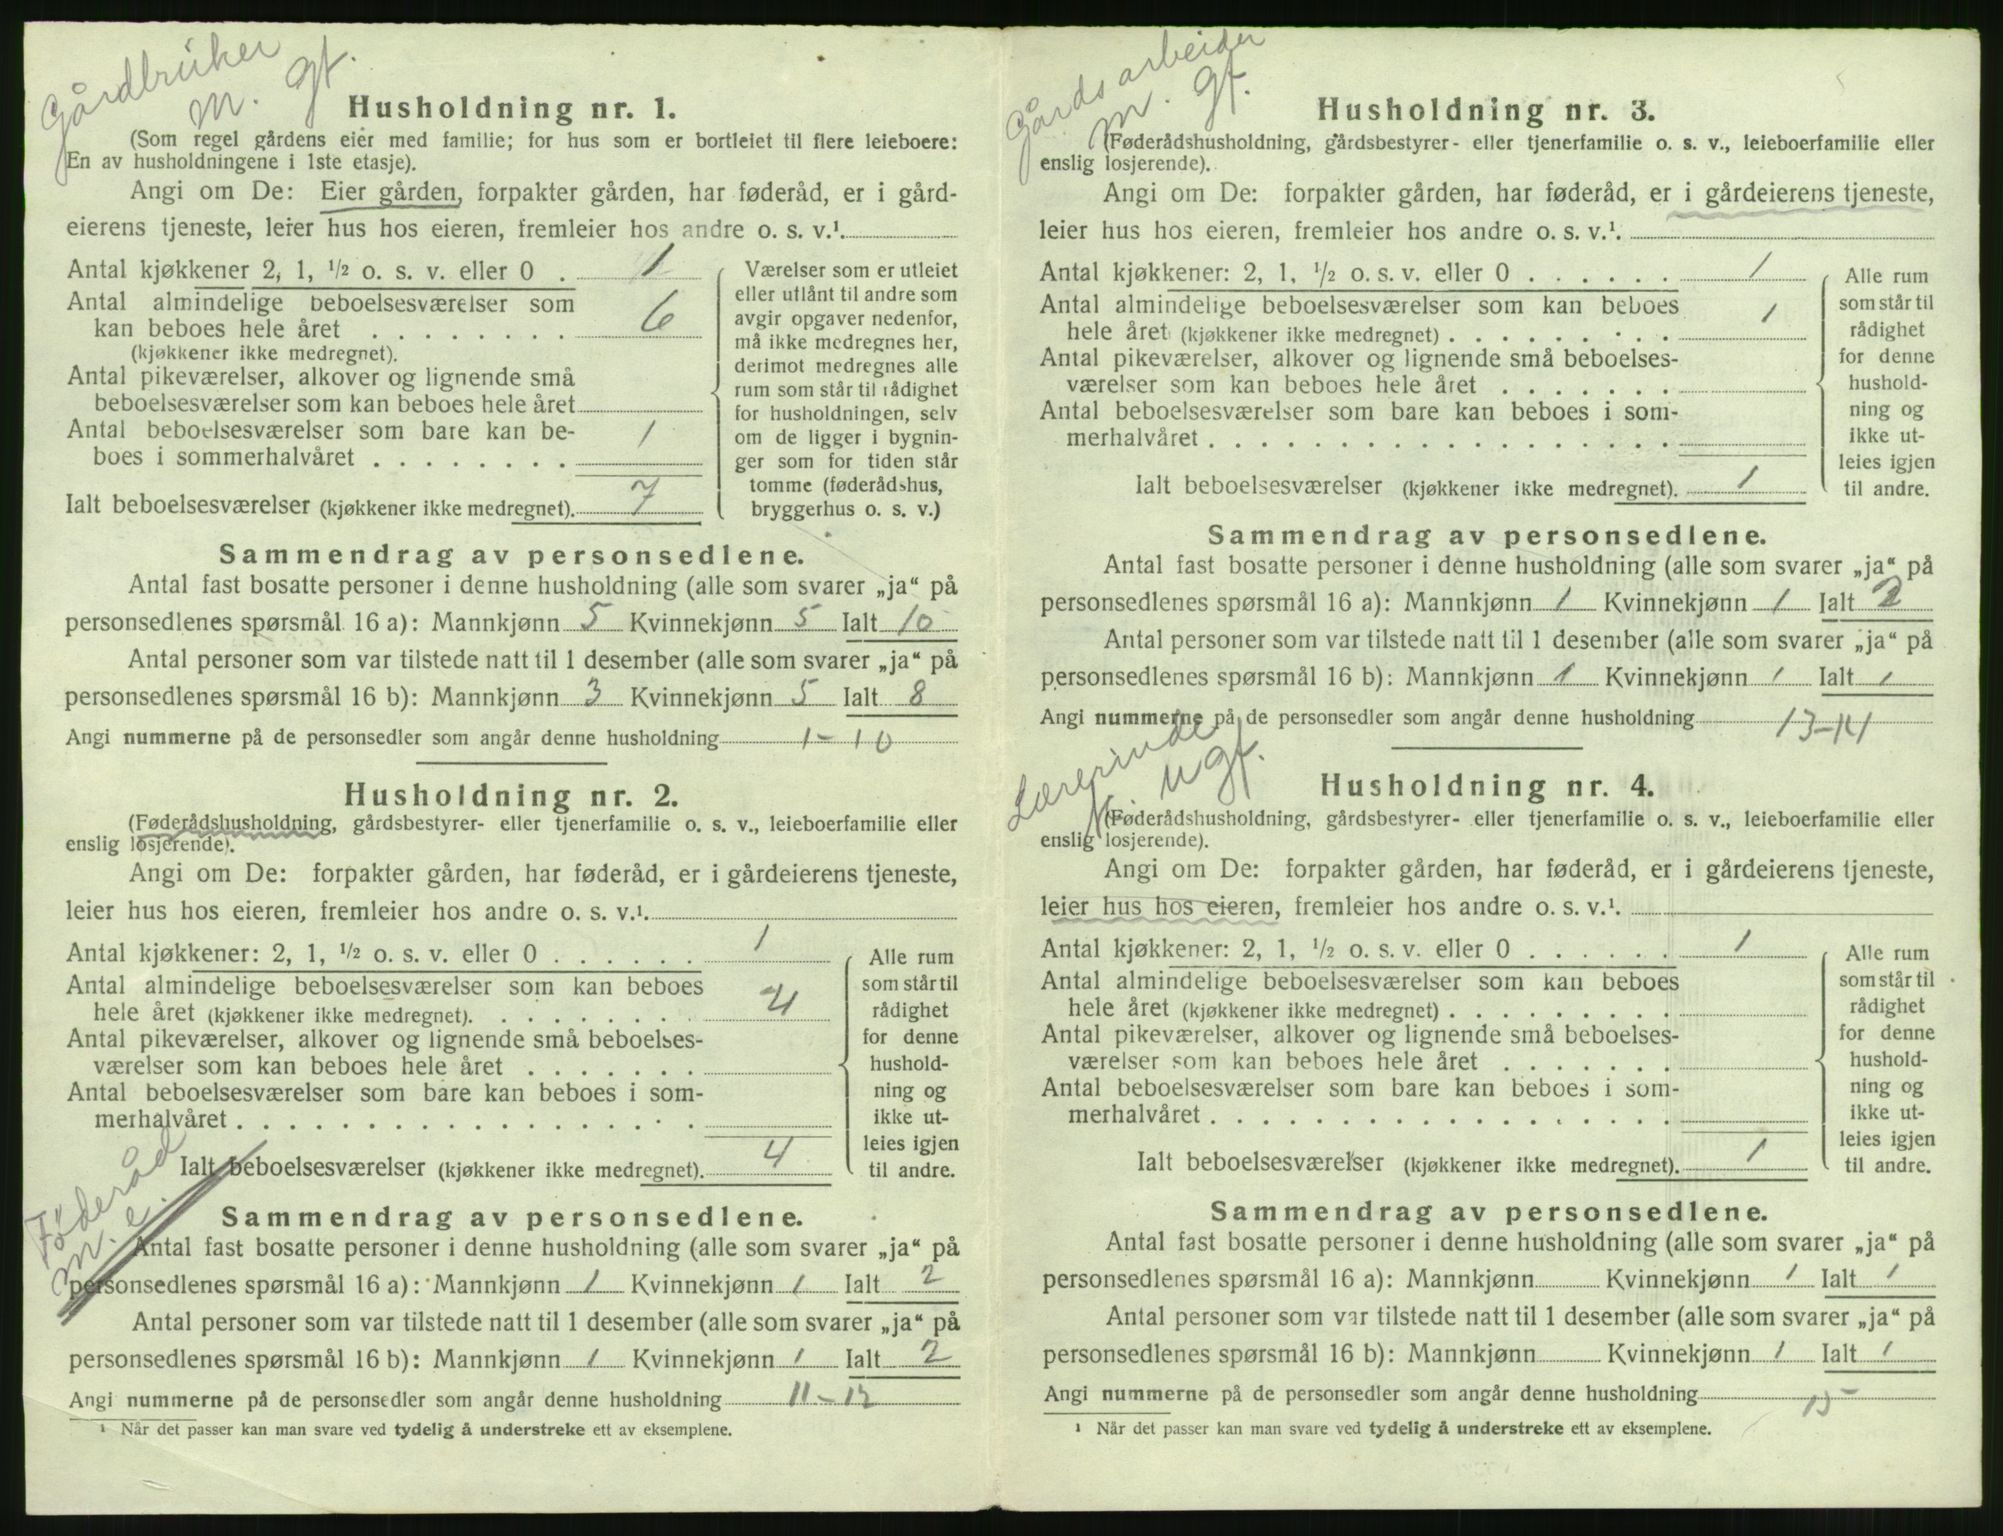 Gårdbruker
M. gt.
Husholdning nr. 1.
(Som regel gårdens eier med familie; for hus som er bortleiet til flere leieboere:
En av husholdningene i 1ste etasje).
Angi om De: Eier gården, forpakter gården, har føderåd, er i gård-
eierens tjeneste, leier hus hos eieren, fremleier hos andre o. s. v.¹
Antal kjøkkener 2, 1, ½ o. s. v. eller 0 . 1
Antal almindelige beboelsesværelser som
kan beboes hele året . . . . . . . . 6
(kjøkkener ikke medregnet).
Antal pikeværelser, alkover og lignende små
beboelsesværelser som kan beboes hele året
Antal beboelsesværelser som bare kan be-
boes i sommerhalvåret . . . . . . . . 1
Ialt beboelsesværelser (kjøkkener ikke medregnet). 7
Værelser som er utleiet
eller utlånt til andre som
avgir opgaver nedenfor,
må ikke medregnes her,
derimot medregnes alle
rum som står til rådighet
for husholdningen, selv
om de ligger i bygnin-
ger som for tiden står
tomme (føderådshus,
bryggerhus o. s. v.)
Sammendrag av personsedlene.
Antal fast bosatte personer i denne husholdning (alle som svarer „ja“ på
personsedlenes spørsmål 16 a): Mannkjønn 5 Kvinnekjønn 5 Ialt 10
Antal personer som var tilstede natt til 1 desember (alle som svarer „ja“ på
personsedlenes spørsmål 16 b): Mannkjønn 3 Kvinnekjønn 5 Ialt 8
Angi nummerne på de personsedler som angår denne husholdning 1-10
Husholdning nr. 2.
(Føderådshusholdning, gårdsbestyrer- eller tjenerfamilie o. s. v., leieboerfamilie eller
enslig losjerende).
Angi om De: forpakter gården, har føderåd, er i gårdeierens tjeneste,
leier hus hos eieren, fremleier hos andre o. s. v.¹
Antal kjøkkener: 2, 1, ½ o. s. v. eller 0 . . . . . . 1
Antal almindelige beboelsesværelser som kan beboes
hele året (kjøkkener ikke medregnet). . . . . . . . . 4
Antal pikeværelser, alkover og lignende små beboelses-
værelser som kan beboes hele året . . . . . . .
Antal beboelsesværelser som bare kan beboes i som-
merhalvåret . . . . . . . . . . . . . . . . . .
Ialt beboelsesværelser (kjøkkener ikke medregnet). 4
Alle rum
som står til
rådighet
for denne
hushold-
ning og
ikke ut-
leies igjen
til andre.
Føderåd
M. e.
Sammendrag av personsedlene.
Antal fast bosatte personer i denne husholdning (alle som svarer „ja“ på
personsedlenes spørsmål 16 a): Mannkjønn 1 Kvinnekjønn 1 Ialt 2
Antal personer som var tilstede natt til 1 desember (alle som svarer „ja“ på
personsedlenes spørsmål 16 b): Mannkjønn 1 Kvinnekjønn 1 Ialt 2
Angi nummerne på de personsedler som angår denne husholdning 11-12
¹ Når det passer kan man svare ved tydelig å understreke ett av eksemplene.
Gårdsarbeider
M. gt.
Husholdning nr. 3.
(Føderådshusholdning, gårdsbestyrer- eller tjenerfamilie o. s. v., leieboerfamilie eller
enslig losjerende).
Angi om De: forpakter gården, har føderåd, er i gårdeierens tjeneste,
leier hus hos eieren, fremleier hos andre o. s. v.¹.
Antal kjøkkener: 2, 1, ½ o. s. v. eller 0 . . . . . . 1
Antal almindelige beboelsesværelser som kan beboes
hele året (kjøkkener ikke medregnet) . . . . . . . . . 1
Antal pikeværelser, alkover og lignende små beboelses-
værelser som kan beboes hele året . . . . . . .
Antal beboelsesværelser som bare kan beboes i som-
merhalvåret . . . . . . . . . . . . . . . . . .
Ialt beboelsesværelser (kjøkkener ikke medregnet). 1
Alle rum
som står til
rådighet
for denne
hushold-
ning og
ikke ut-
leies igjen
til andre.
Sammendrag av personsedlene.
Antal fast bosatte personer i denne husholdning (alle som svarer „ja“ på
personsedlenes spørsmål 16 a): Mannkjønn 1 Kvinnekjønn 1 Ialt 2
Antal personer som var tilstede natt til 1 desember (alle som svarer „ja“ på
personsedlenes spørsmål 16 b): Mannkjønn 1 Kvinnekjønn 1 Ialt 1
Angi nummerne på de personsedler som angår denne husholdning 13-14
Lærerinde
ugt.
Husholdning nr. 4.
(Føderådshusholdning, gårdsbestyrer- eller tjenerfamilie o. s. v., leieboerfamilie eller
enslig losjerende).
Angi om De: forpakter gården, har føderåd, er i gårdeierens tjeneste,
leier hus hos eieren, fremleier hos andre o. s. v.¹.
Antal kjøkkener: 2, 1, ½ o. s. v. eller 0 . . . . . . 1
Antal almindelige beboelsesværelser som kan beboes
hele året (kjøkkener ikke medregnet) . . . . . . . . .
Antal pikeværelser, alkover og lignende små beboelses-
værelser som kan beboes hele året . . . . . . .
Antal beboelsesværelser som bare kan beboes i som-
merhalvåret . . . . . . . . . . . . . . . . . .
Ialt beboelsesværelser (kjøkkener ikke medregnet). 1
Alle rum
som står til
rådighet
for denne
hushold-
ning og
ikke ut-
leies igjen
til andre.
Sammendrag av personsedlene.
Antal fast bosatte personer i denne husholdning (alle som svarer „ja“ på
personsedlenes spørsmål 16 a): Mannkjønn Kvinnekjønn 1 Ialt 1
Antal personer som var tilstede natt til 1 desember (alle som svarer „ja“ på
personsedlenes spørsmål 16 b): Mannkjønn Kvinnekjønn 1 Ialt 1
Angi nummerne på de personsedler som angår denne husholdning 15
¹ Når det passer kan man svare ved tydelig å understreke ett av eksemplene.